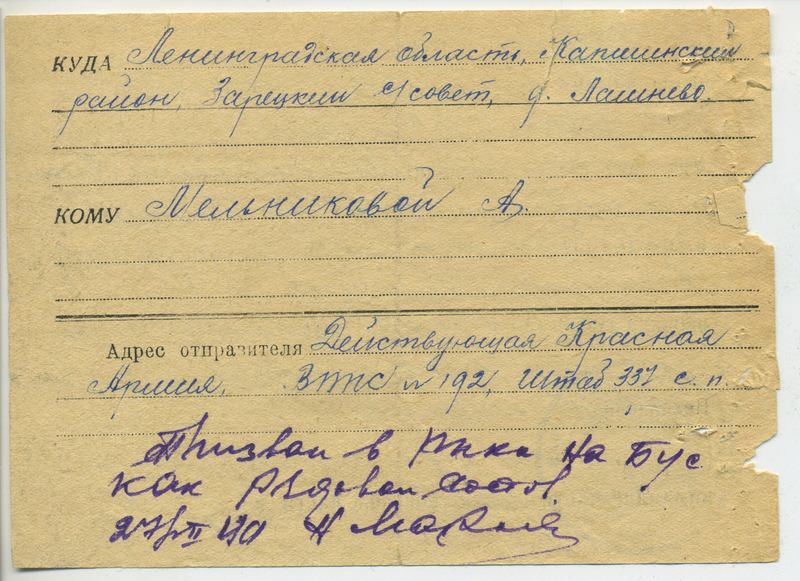 КУДА Ленинградская область, Капшинский
район, Зарецкий с/совет, д. Лашнево.
КОМУ Мельниковой А.
Адрес отправителя Действующая Красная
Армия, ВПпС № 192, Штаб 337 с. п.
в на
как